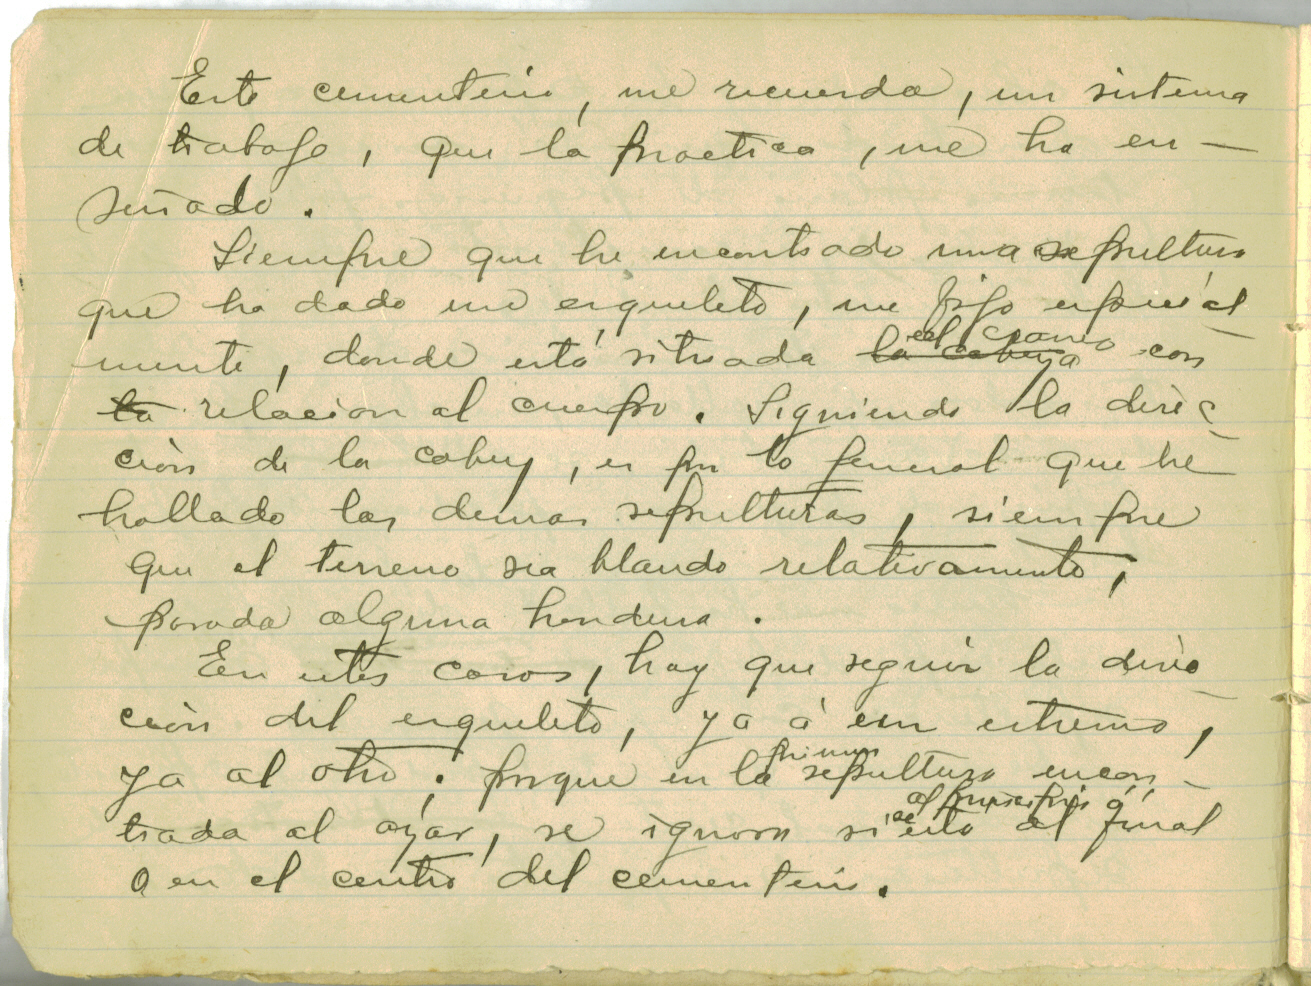 Este cementerio, me recuerda, un sistema
de trabajo, que la practica, me ha en-
señado.
Siempre que he encontrado una sepultura
que ha dado un esqueleto, me fijo especial-
mente, donde está situada la cabeza el craneo con
la relacion al cuerpo. Siguiendo la direc-
ción de la cabeza, es por lo general que he
hallado las demas sepulturas, siempre
que el terreno sea blando relativamente,
parada alguna hondura.
En estos casos, hay que seguir la direc-
ción del esqueleto, ya á un extremo,
ya al otro; porque en la primera sepultura encon-
trada al azar, se ignora si se está al principio ó al final
o en el centro del cementerio.